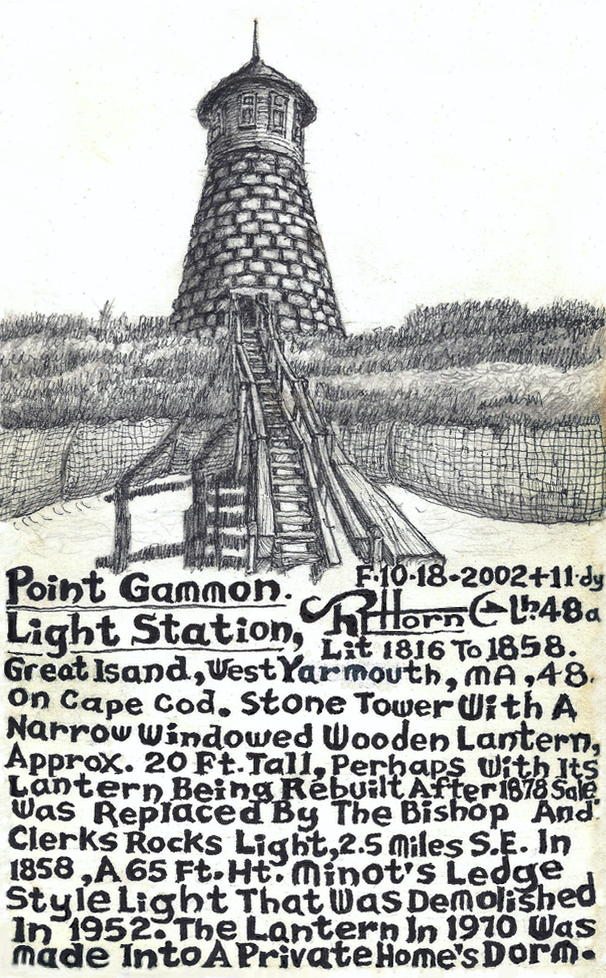 Point Gammon.
F.10-18-2002+11.dy
Light Station,
RHorn Lh.48a
Lit 1816 To 1858.
Great Isand, West Yarmouth, MA, 48.
On Cape Cod. Stone Tower With A
Narrow Windowed Wooden Lantern,
Approx. 20 Ft. Tall, Perhaps With Its
Lantern Being Rebuilt After 1878 Sale
Was Replaced By The Bishop And
Clerks Rocks Light, 2.5 Miles S.E. In
1858, A 65 Ft. Ht. Minot's Ledge
Style Light That Was Demolished
In 1952. The Lantern In 1970 Was
Made Into A Private Home's Dorm.